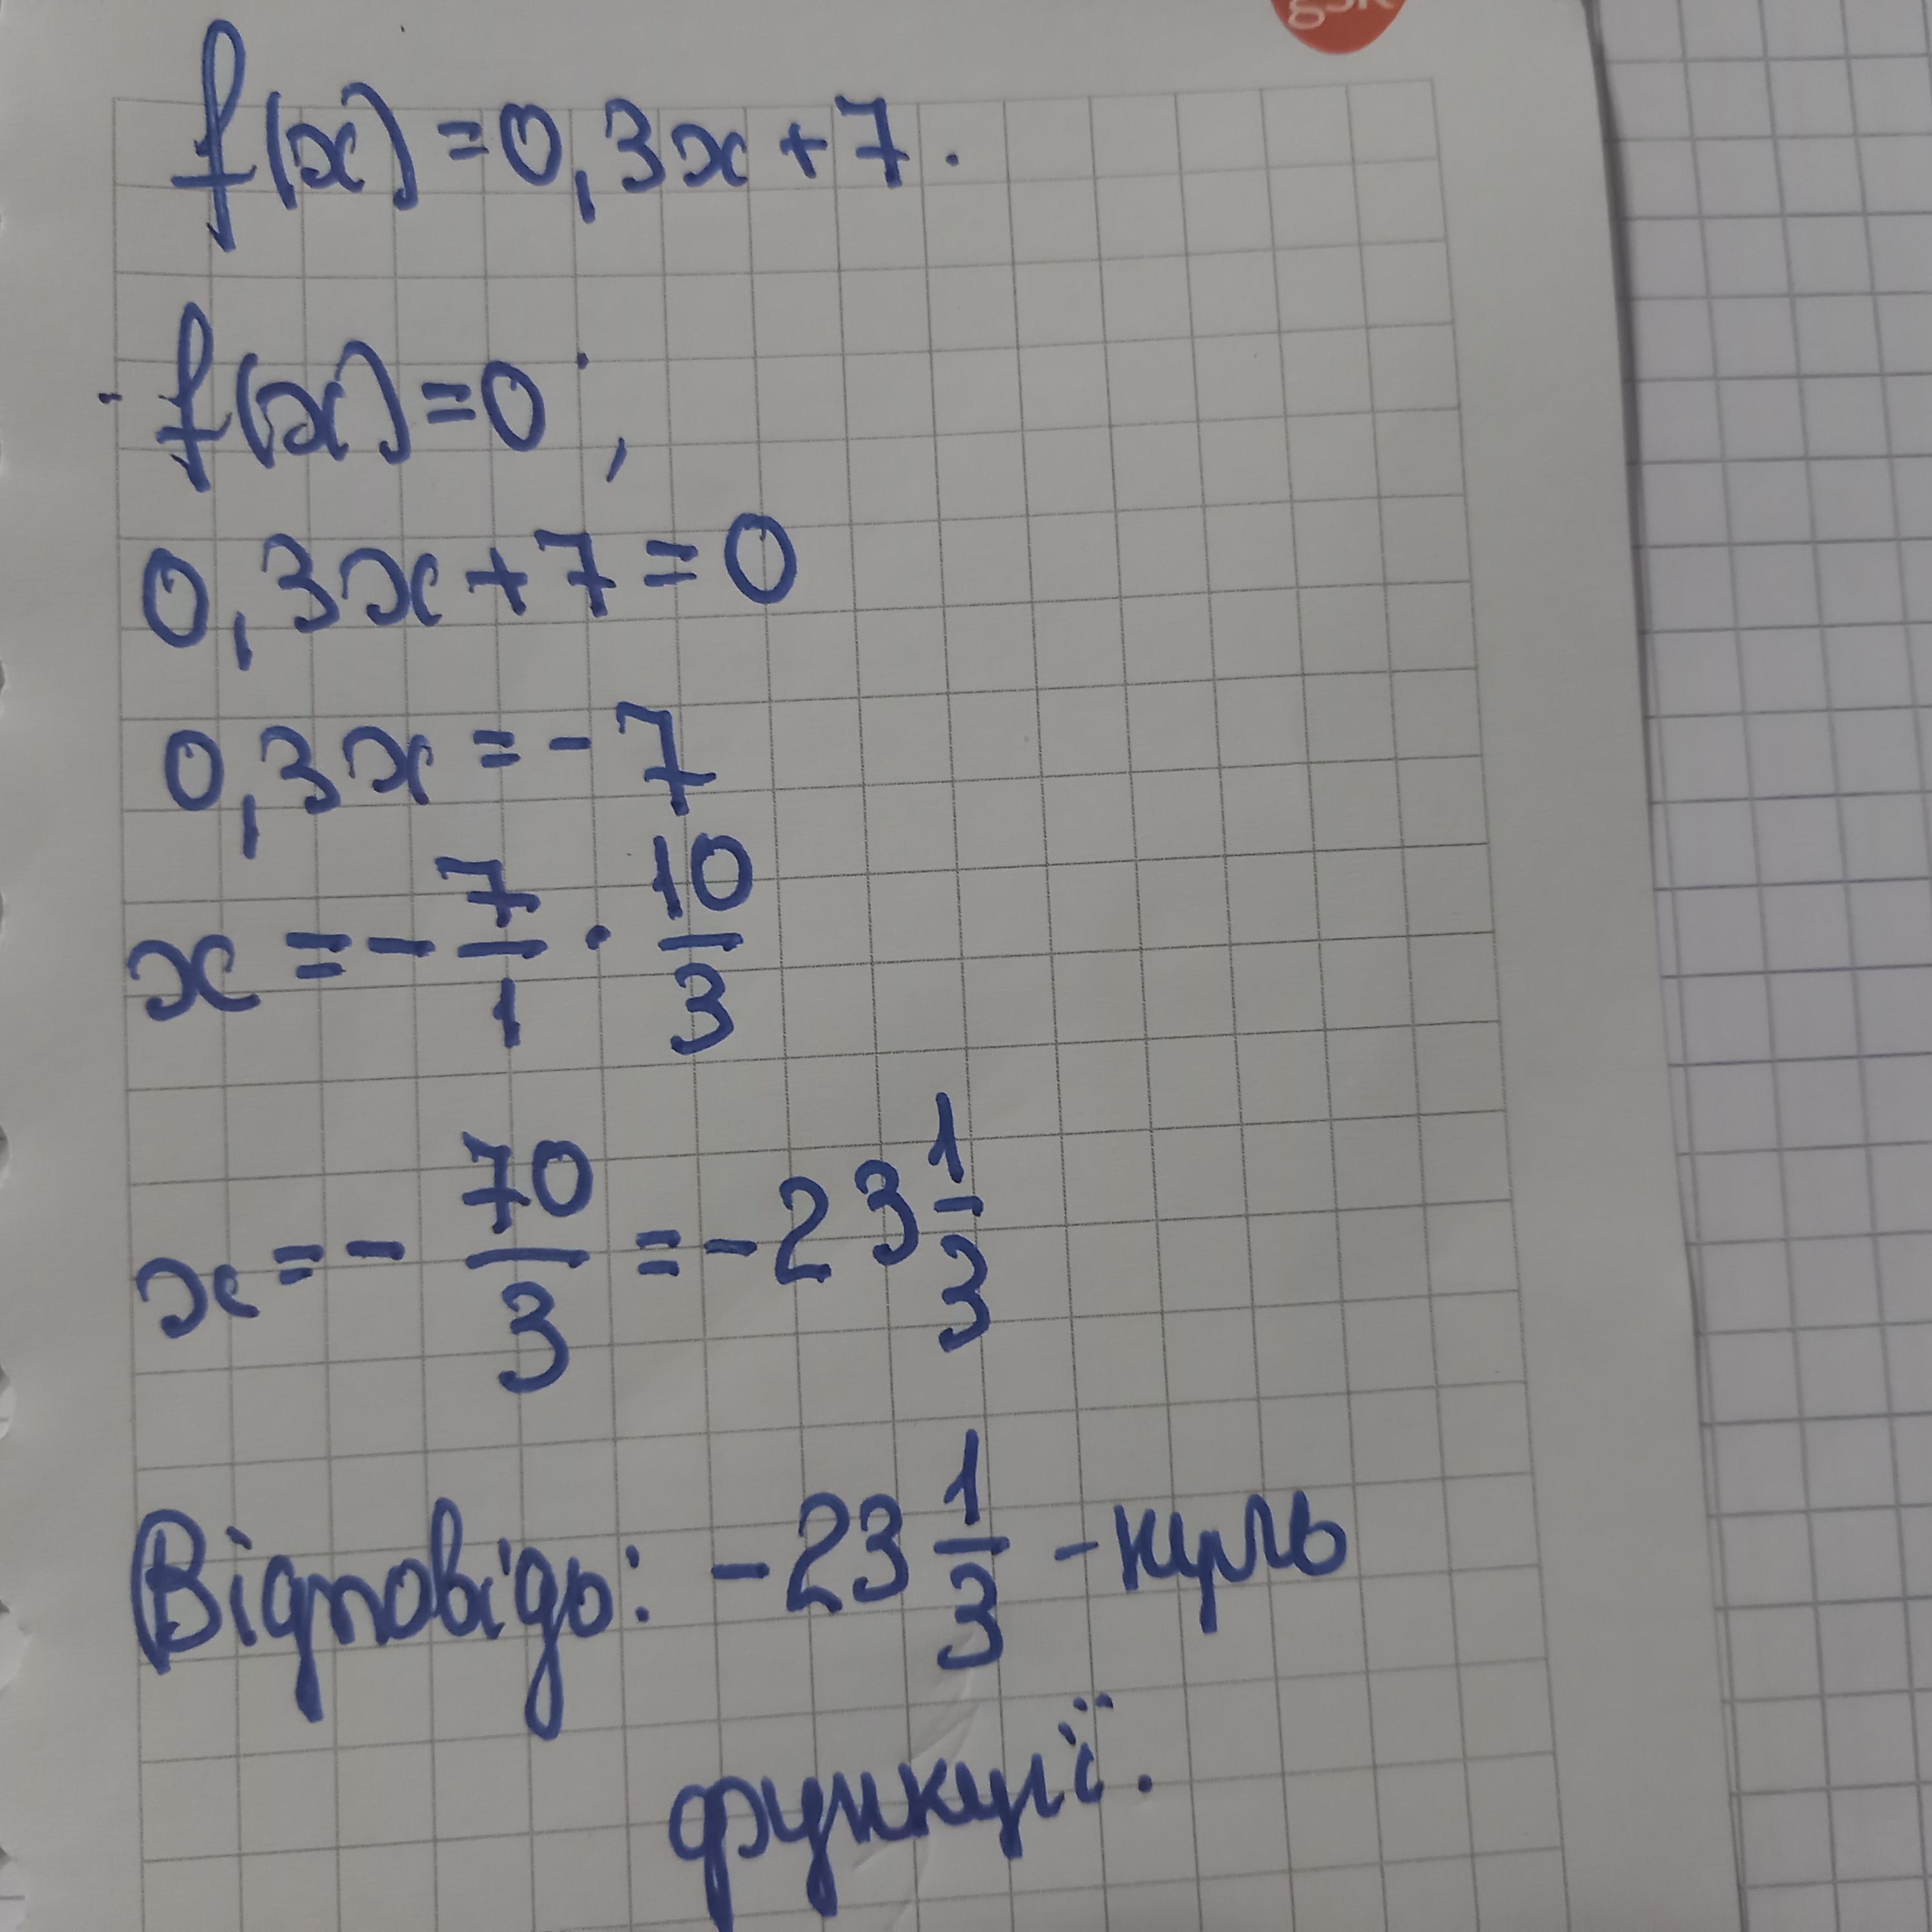 f(x) = 0,3x + 7.
f(x) = 0;
0,3x + 7 = 0
0,3x = - 7
x = - 7/1 · 10/3
x = - 70/3 = - 23 1/3
Відповідь: - 23 1/3 - нуль
функції.